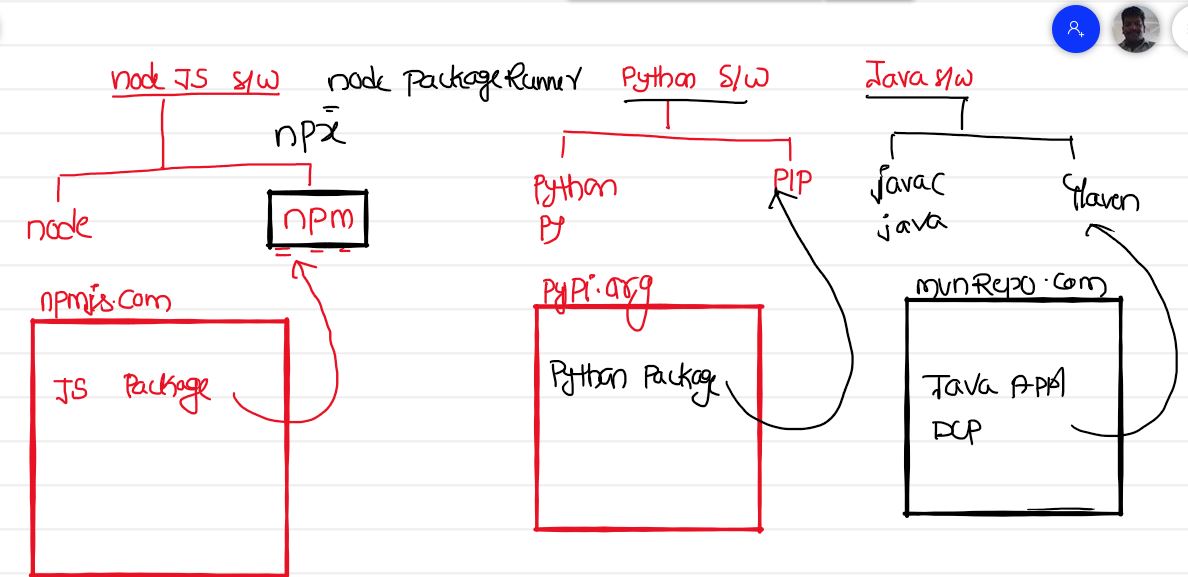 node JS S/W
node packageRunner
npx
node
npm
npmjs.com
JS Package
Python S/W
Python
Py
PIP
PyPi.org
Python Package
Java S/W
javac
java
Maven
mvnRepo.com
Java APP
DCP